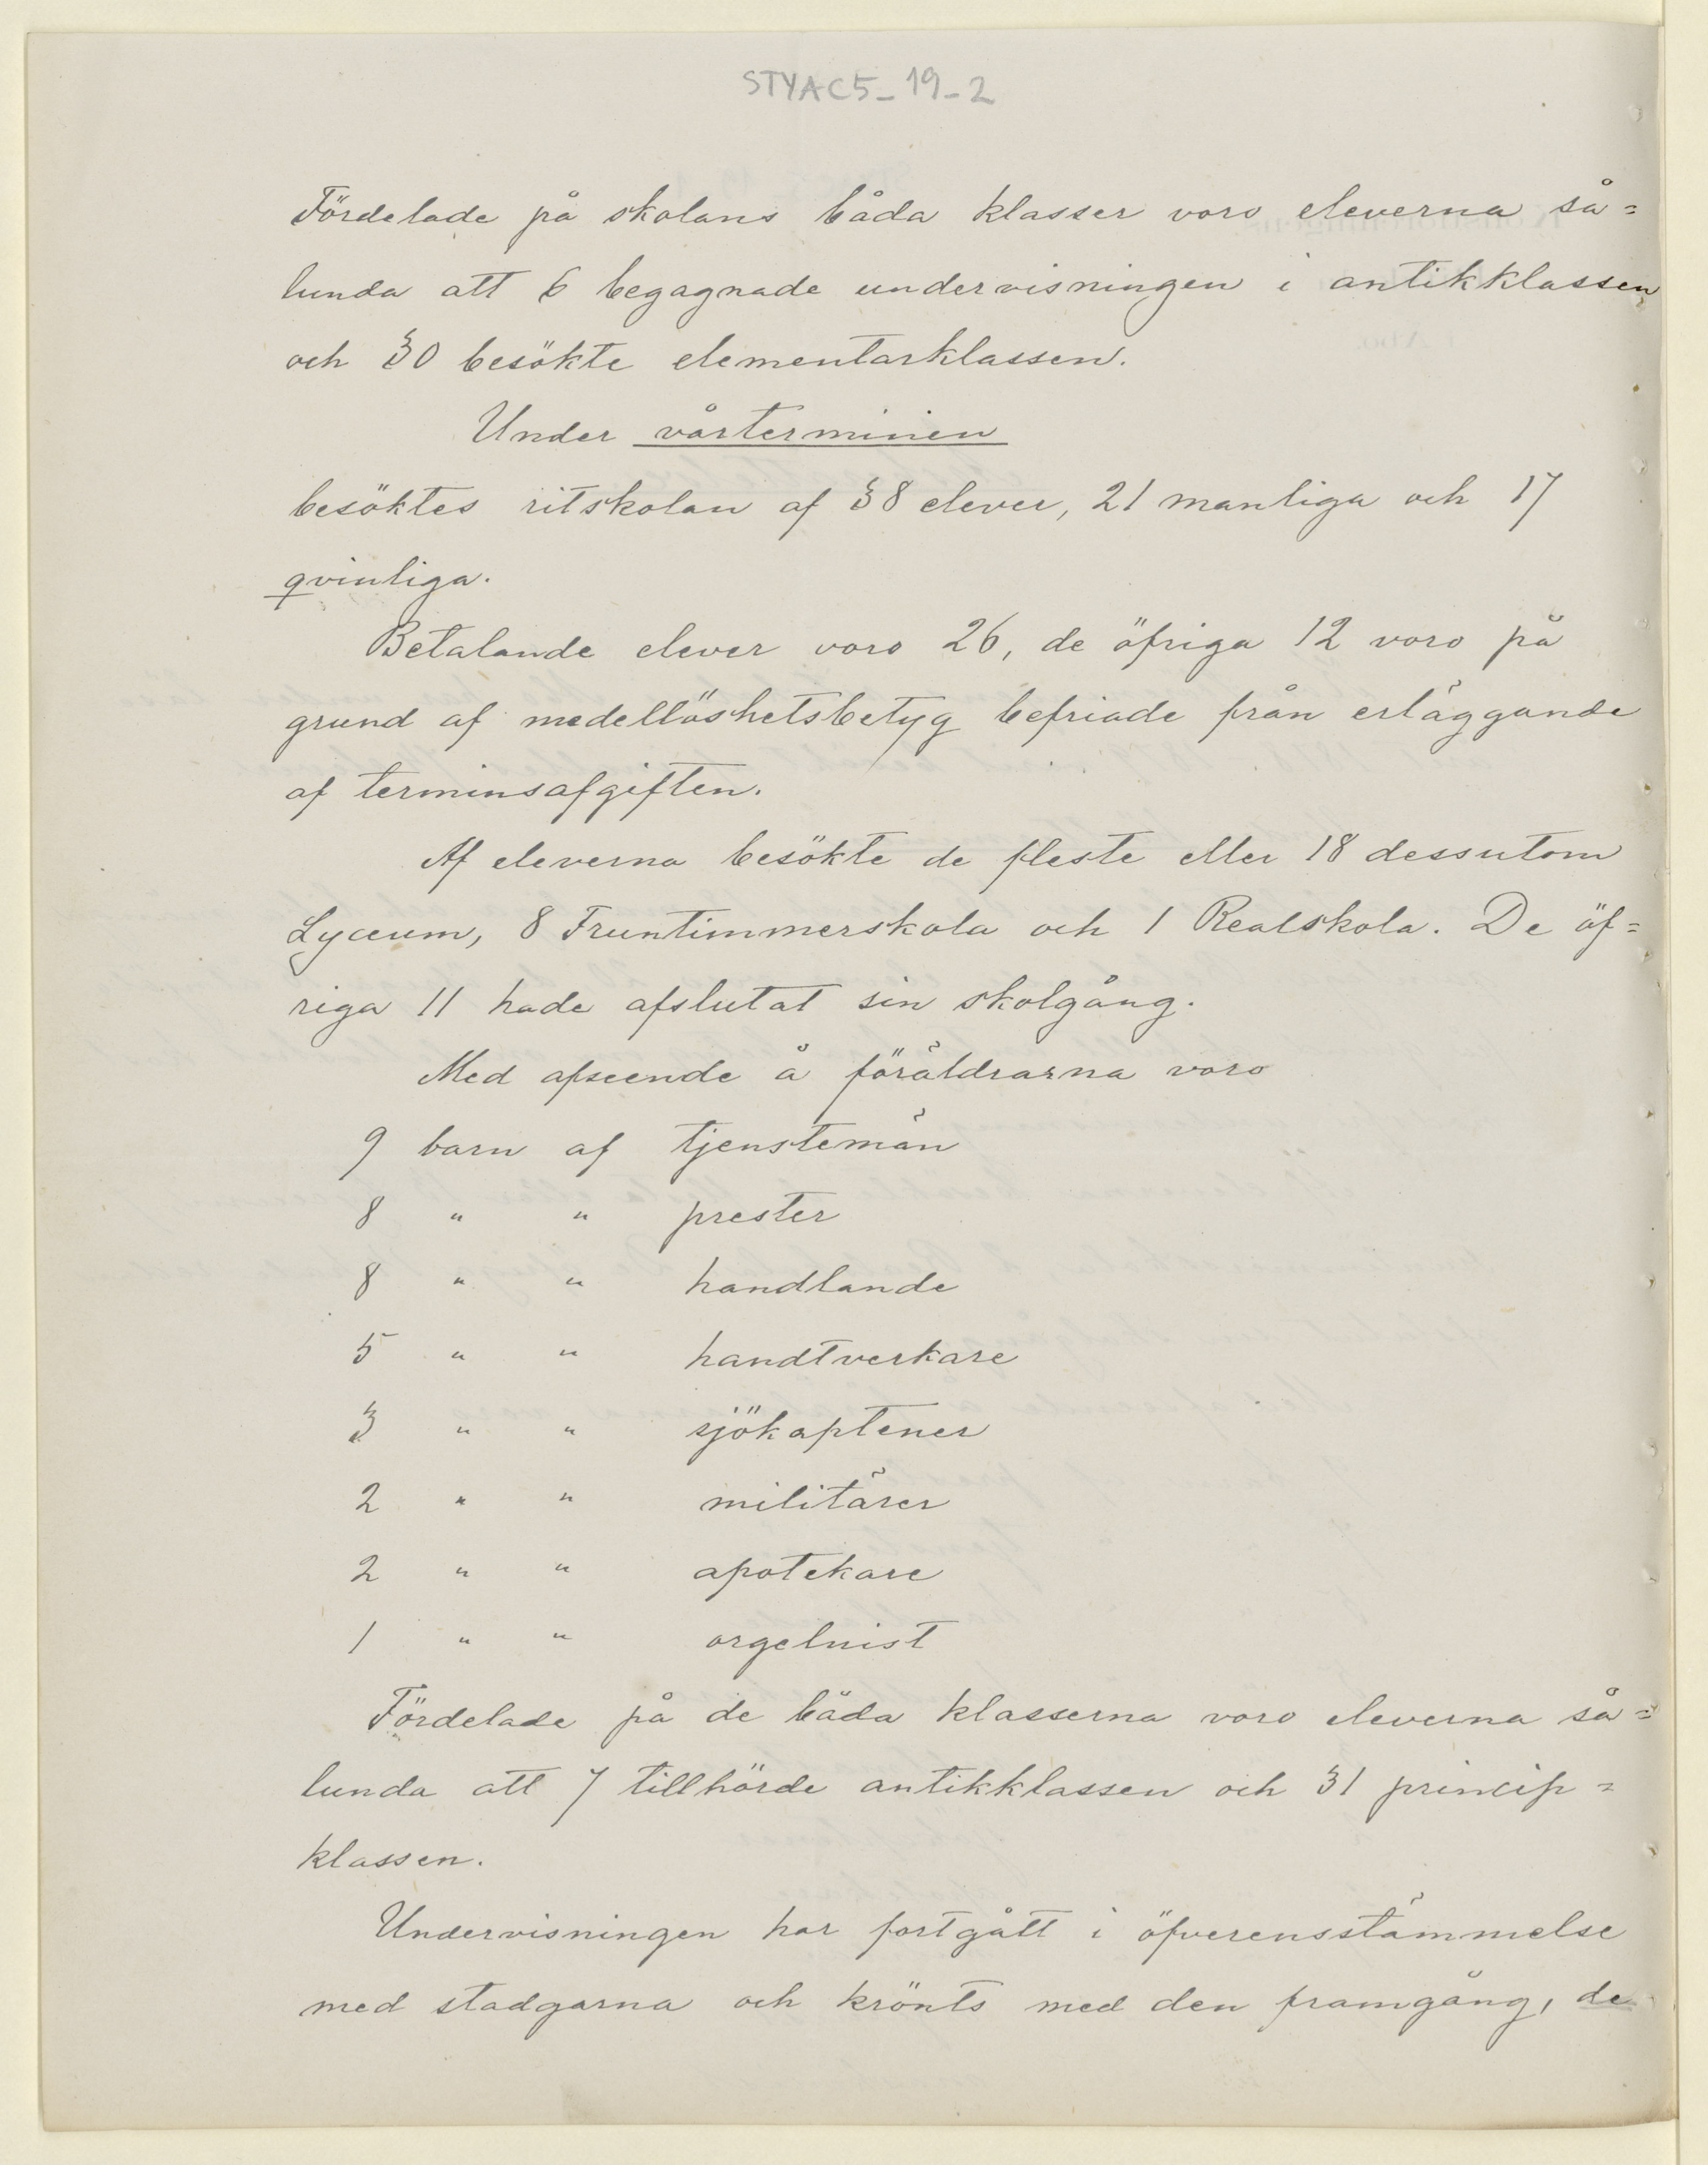 STYAC5_19_2
Fördelade på skolans båda klasser voro eleverna så=
lunda att 6 begagnade undervisningen i antikklassen
och 30 besökte elementarklassen.
Under vårterminen
besöktes ritskolan af 38 elever, 21 manliga och 17
qvinliga.
Betalande elever voro 26, de öfriga 12 voro på
grund af medellöshetsbetyg befriade från erläggande
af terminsafgiften.
Af eleverna besökte de fleste eller 18 dessutom
Lyceum, 8 Fruntimmerskola och 1 Realskola. De öf=
riga 11 hade afslutat sin skolgång.
Med afseende å föräldrarna voro
9 barn af tjenstemän
8 " " prester
8 " " handlande
5 " " handtverkare
3 " " sjökaptener
2 " " militärer
2 " " apotekare
1 " " orgelnist
Fördelade på de båda klasserna voro eleverna så=
lunda att 7 tillhörde antikklassen och 31 princip=
klassen.
Undervisningen har fortgått i öfverensstämmelse
med stadgarna och krönts med den framgång, de